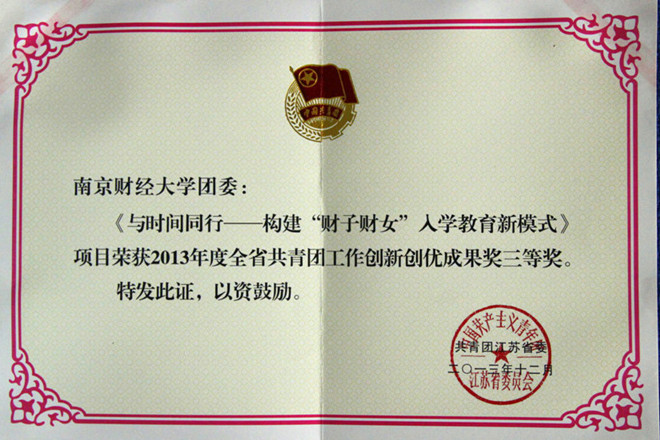 中国共青团
南京财经大学团委：
《与时间同行——构建“财子财女”入学教育新模式》
项目荣获2013年度全省共青团工作创新创优成果奖三等奖。
特发此证，以资鼓励。
中国共产主义青年团
共青团江苏省委
二〇一三年十二月
江苏省委员会